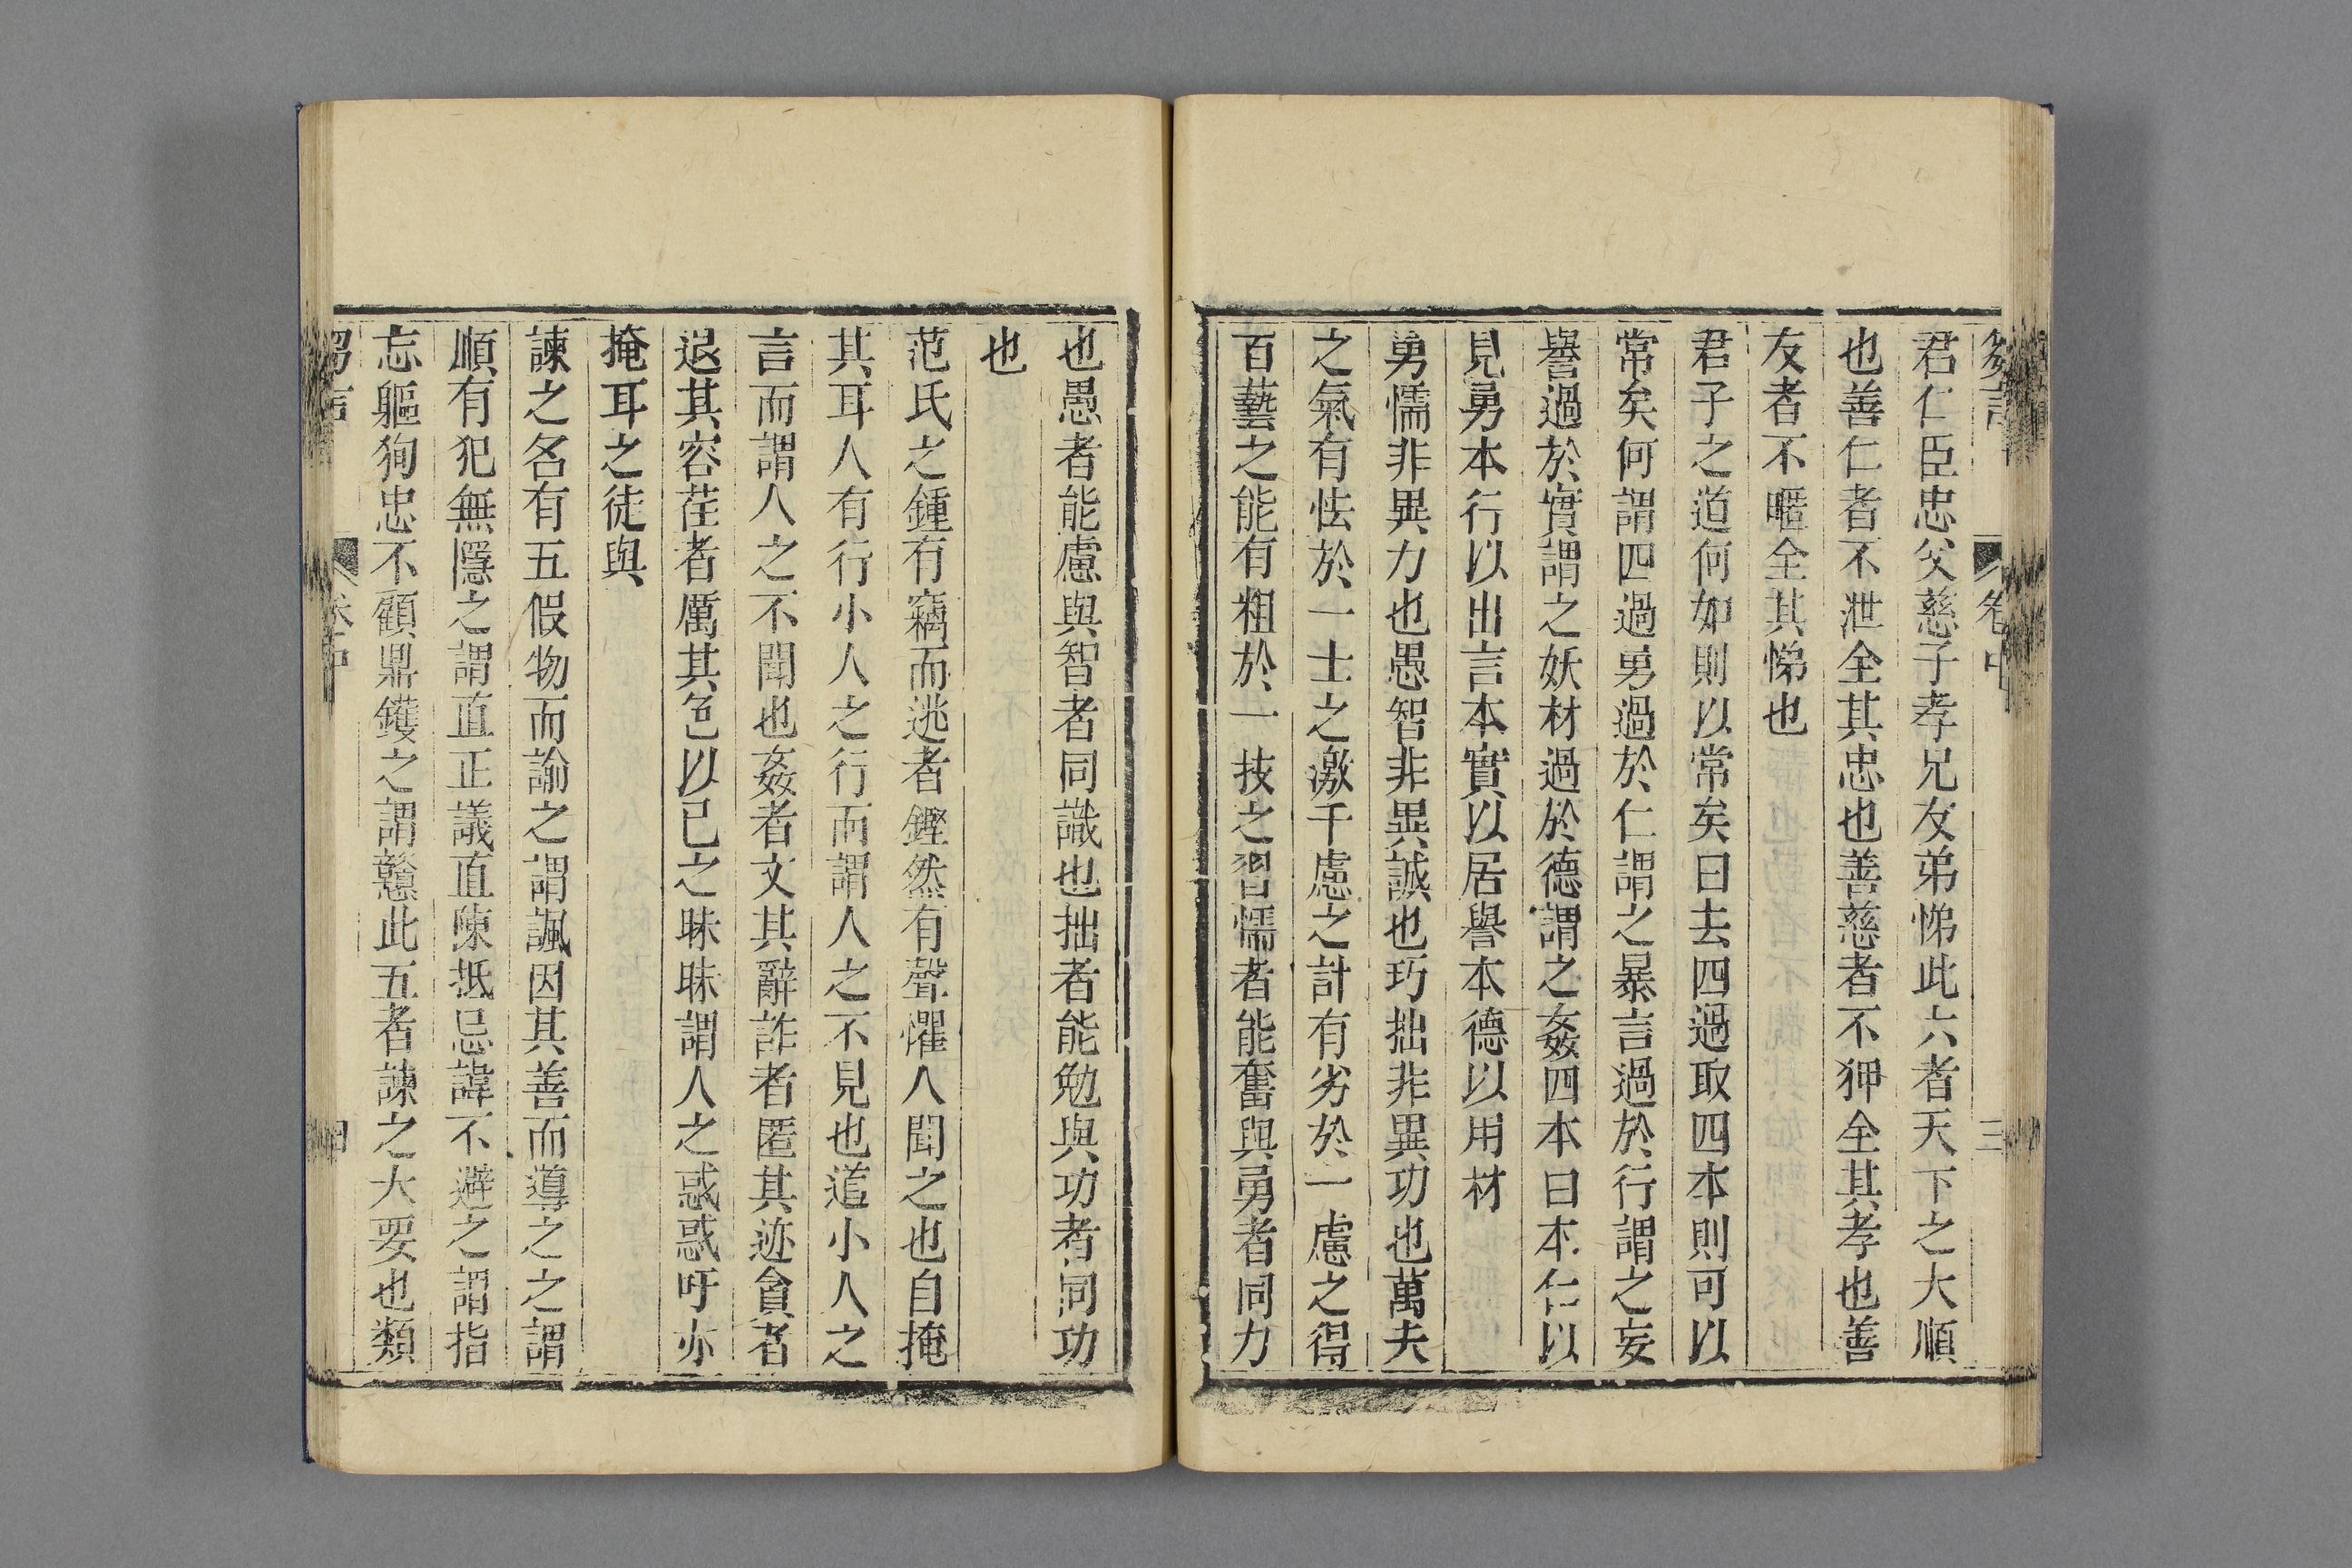 芻言 卷中 三
君仁臣忠父慈子孝兄友弟悌此六者天下之大順
也善仁者不泄全其忠也善慈者不狎全其孝也善
友者不暱全其悌也
君子之道何如則以常矣曰去四過取四本則可以
常矣何謂四過勇過於仁謂之暴言過於行謂之妄
譽過於實謂之妖材過於德謂之姦四本曰本仁以
見勇本行以出言本實以居譽本德以用材
勇懦非異力也愚智非異誠也巧拙非異功也萬夫
之氣有怯於一士之激千慮之計有劣於一慮之得
百藝之能有粗於一技之習懦者能奮與勇者同力
也愚者能慮與智者同識也拙者能勉與功者同功
也
范氏之鍾有竊而逃者鏗然有聲懼人聞之也自掩
其耳人有行小人之行而謂人之不見也道小人之
言而謂人之不聞也姦者文其辭詐者匿其迹貪者
退其容荏者厲其色以已之昧昧謂人之惑惑吁亦
掩耳之徒與
諫之名有五假物而諭之謂諷因其善而導之之謂
順有犯無隱之謂直正議直陳抵忌諱不避之謂指
忘軀狥忠不顧鼎鑊之謂戇此五者諫之大要也類
芻言 卷中 四